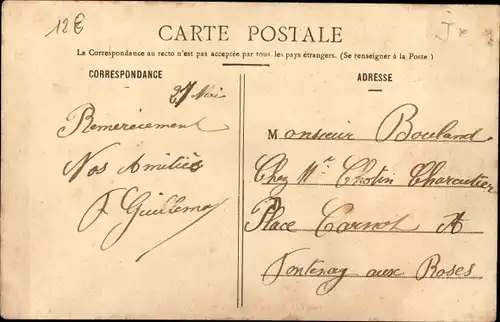 12€
J x
CARTE POSTALE
La Correspondance au recto n'est pas acceptée par tous les pays étrangers. (Se renseigner à la Poste)
CORRESPONDANCE
27 Mai
Remerciement
Nos Amitiés
F. Guillemay
ADRESSE
Monsieur Bouland
Chez Mr Chotin Charcutier
Place Carnot A
Fontenay aux Roses